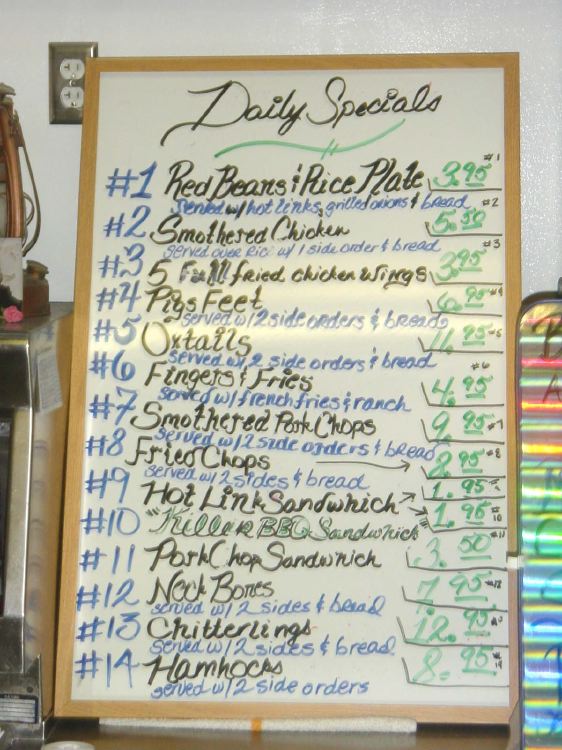 Daily Specials
#1 Red Beans & Rice Plate 3.95 #1
served w/ hot links, grilled onions & bread
#2 Smothered Chicken 5.50 #2
served over Rice w/ 1 side order & bread
#3 5 Full fried chicken wings 3.95 #3
#4 Pigs Feet 6.95 #4
served w/ 2 side orders & breads
#5 Oxtails 11.95 #5
served w/ 2 side orders & bread
#6 Fingers & Fries 4.95 #6
served w/ french fries & ranch
#7 Smothered Pork Chops 9.95 #7
served w/ 2 side orders & bread
#8 Fried Chops 8.95 #8
served w/ 2 sides & bread
#9 Hot Link Sandwhich 1.95
#10 "Killer BBQ Sandwhich" 1.95 #10
#11 Pork Chop Sandwhich 3.50 #11
#12 Neck Bones 7.95 #12
served w/ 2 sides & bread
#13 Chitterlings 12.95
served w/ 2 sides & bread
#14 Hamhocks 8.95 #14
served w/ 2 side orders